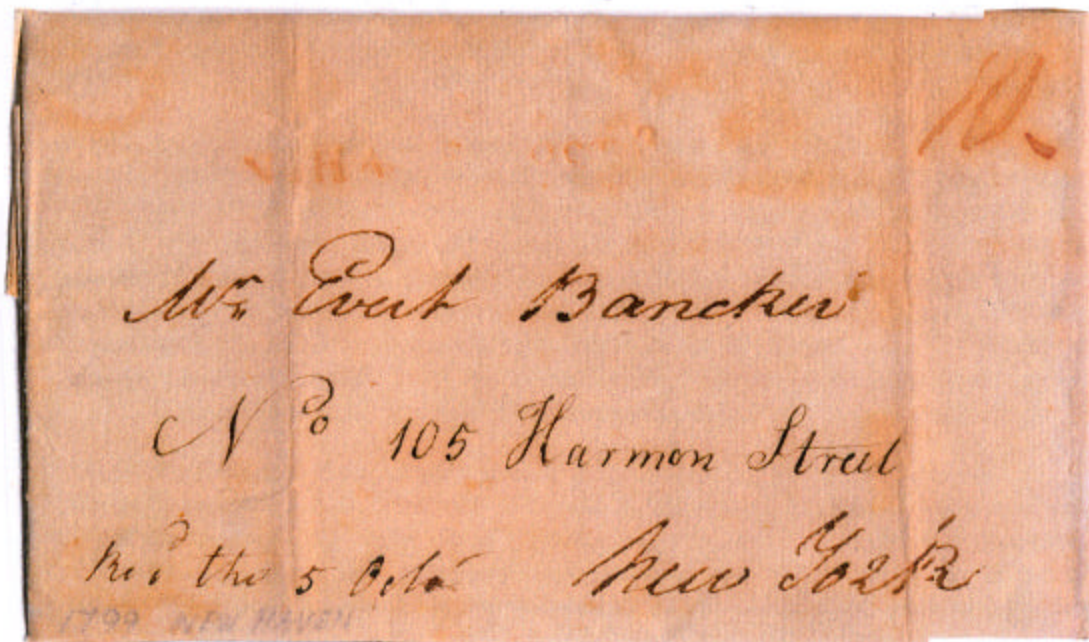 10
Mr Evert Bancker
No 105 Harmon Street
Recd the 5 Octr New York
1799 NEW HAVEN